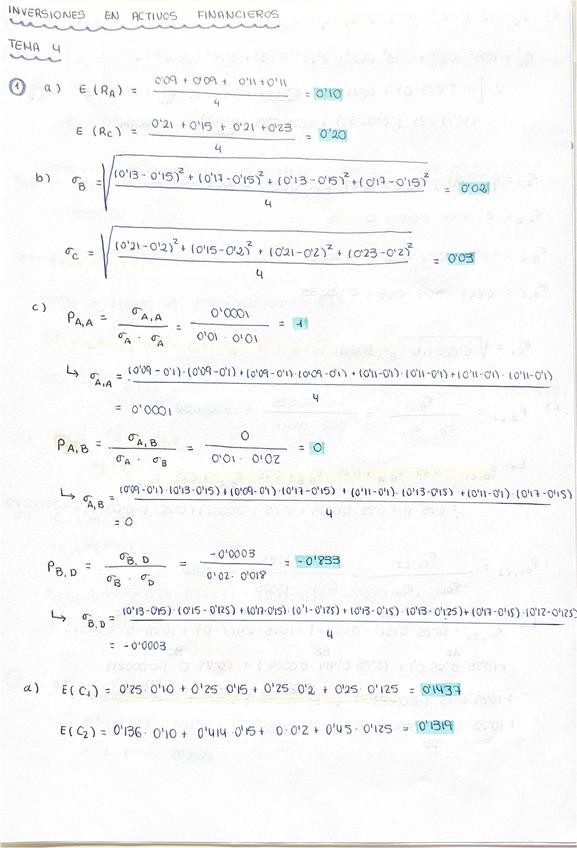 INVERSIONES EN ACTIVOS FINANCIEROS
TEMA 4
① a) E(R_A) = (0'09 + 0'09 + 0'11 + 0'11) / 4 = 0'10
E(R_C) = (0'21 + 0'15 + 0'21 + 0'23) / 4 = 0'20
b) σ_B = √(((0'13 - 0'15)² + (0'17 - 0'15)² + (0'13 - 0'15)² + (0'17 - 0'15)²) / 4) = 0'02
σ_C = √(((0'21 - 0'2)² + (0'15 - 0'2)² + (0'21 - 0'2)² + (0'23 - 0'2)²) / 4) = 0'03
c) P_A,A = σ_A,A / (σ_A · σ_A) = 0'0001 / (0'01 · 0'01) = 1
↳ σ_A,A = ((0'09 - 0'1)·(0'09 - 0'1) + (0'09 - 0'1)·(0'09 - 0'1) + (0'11 - 0'1)·(0'11 - 0'1) + (0'11 - 0'1)·(0'11 - 0'1)) / 4
= 0'0001
P_A,B = σ_A,B / (σ_A · σ_B) = 0 / (0'01 · 0'02) = 0
↳ σ_A,B = ((0'09 - 0'1)·(0'13 - 0'15) + (0'09 - 0'1)·(0'17 - 0'15) + (0'11 - 0'1)·(0'13 - 0'15) + (0'11 - 0'1)·(0'17 - 0'15)) / 4
= 0
P_B,D = σ_B,D / (σ_B · σ_D) = -0'0003 / (0'02 · 0'018) = -0'833
↳ σ_B,D = ((0'13 - 0'15)·(0'15 - 0'125) + (0'17 - 0'15)·(0'1 - 0'125) + (0'13 - 0'15)·(0'13 - 0'125) + (0'17 - 0'15)·(0'12 - 0'125) / 4
= -0'0003
a) E(C₁) = 0'25 · 0'10 + 0'25 · 0'15 + 0'25 · 0'2 + 0'25 · 0'125 = 0'1437
E(C₂) = 0'136 · 0'10 + 0'414 · 0'15 + 0 · 0'2 + 0'45 · 0'125 = 0'1319